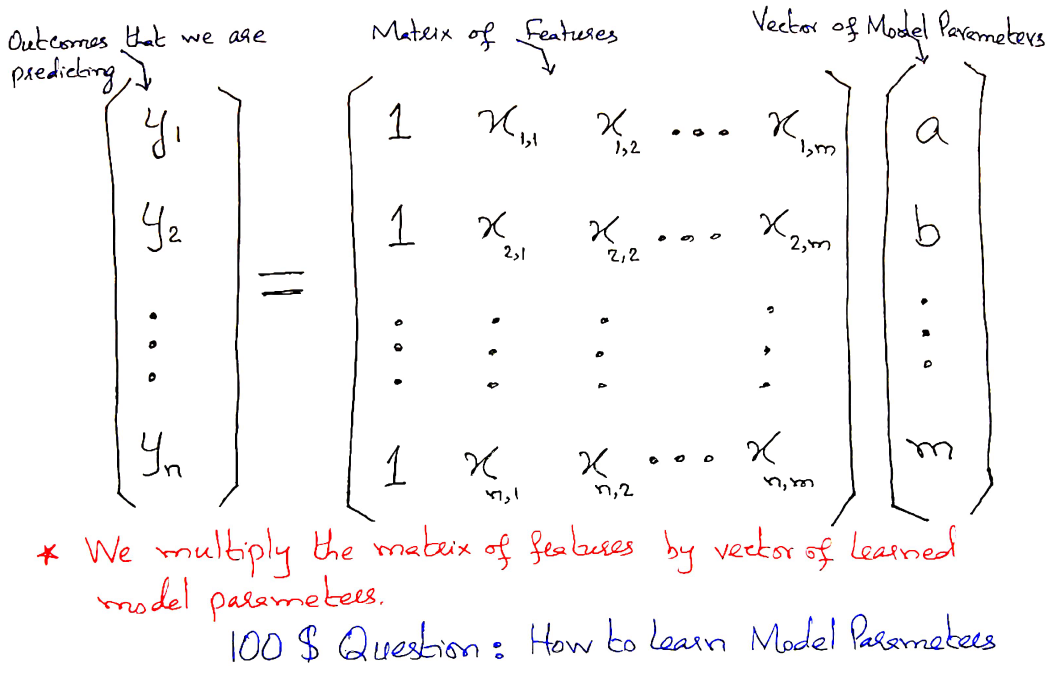 Outcomes that we are
predicting
Matrix of Features
Vector of Model Parameters
y₁ = 1 x₁,₁ x₁,₂ ... x₁,m a
y₂ 1 x₂,₁ x₂,₂ ... x₂,m b
yn 1 xn,₁ xn,₂ ... xn,m m
* We multiply the matrix of features by vector of learned
model parameters.
100 $ Question : How to Learn Model Parameters